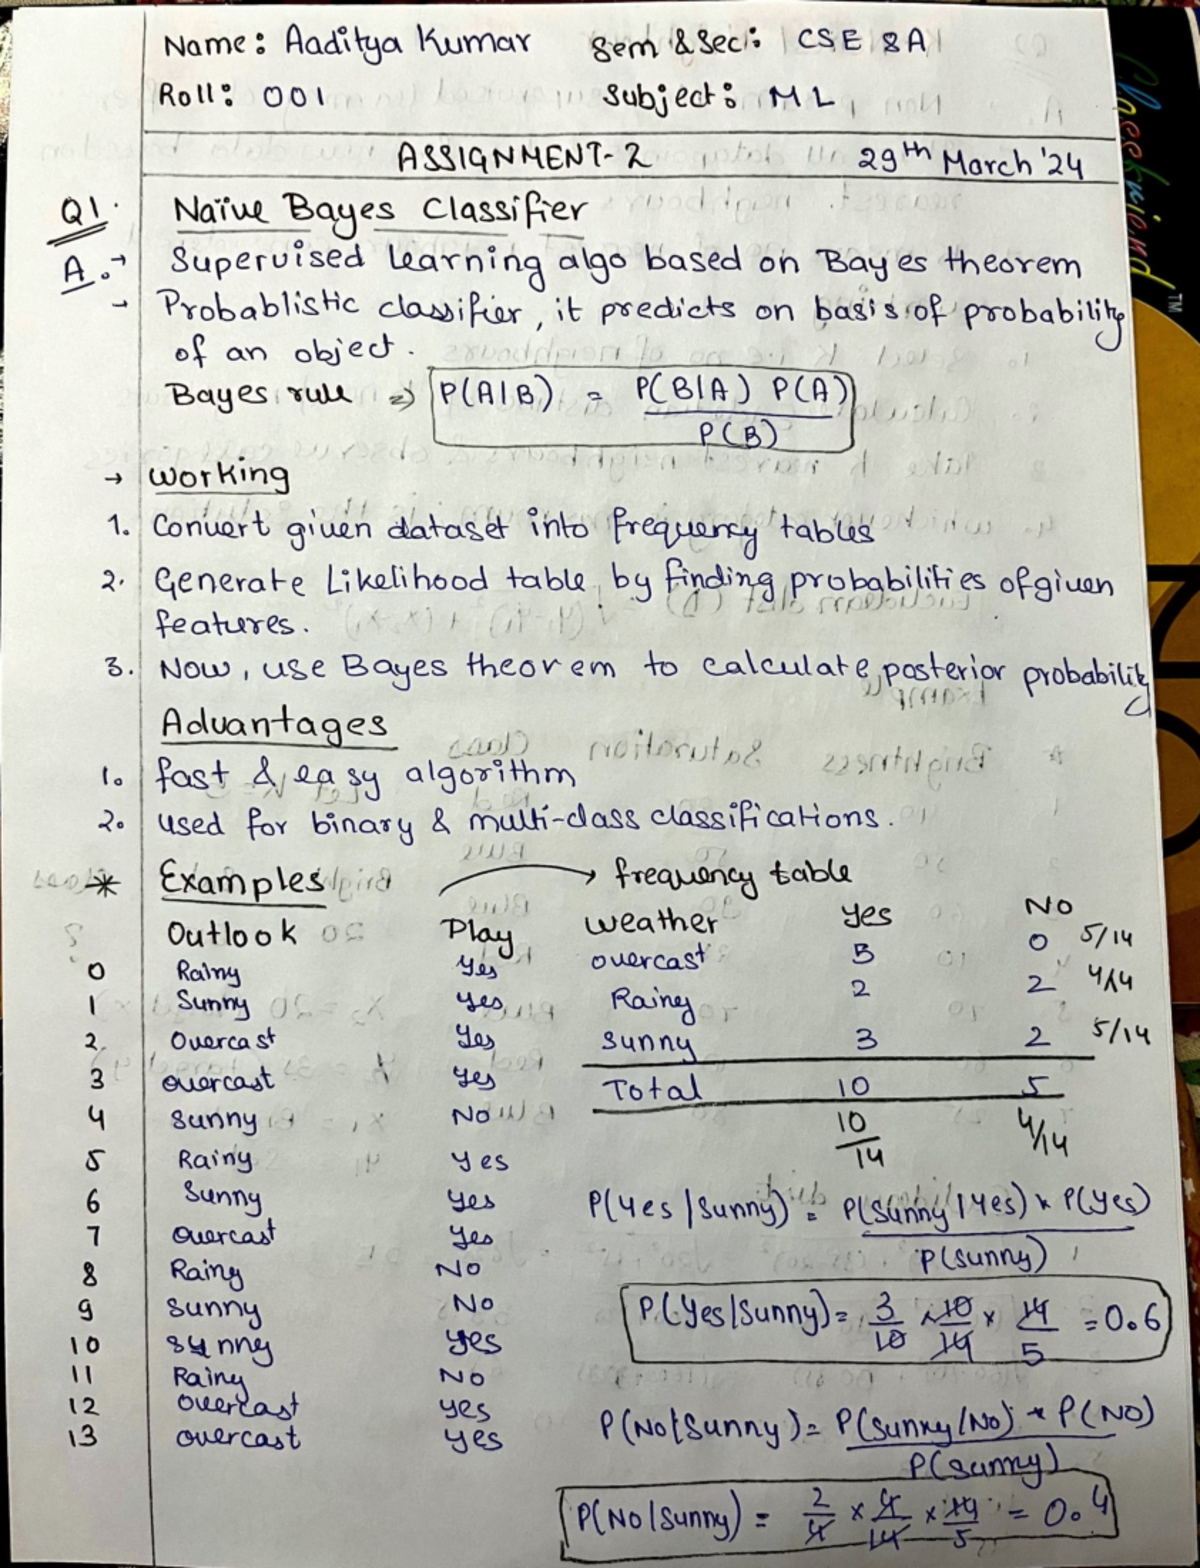 Name: Aaditya Kumar Sem & Sec: CSE 8A
Roll: 001 Subject: ML
ASSIGNMENT-2 29th March '24
Q1. Naïve Bayes Classifier
A. → Supervised learning algo based on Bayes theorem
- Probablistic classifier, it predicts on basis of probability
of an object.
Bayes rule => P(A|B) = P(B|A) P(A) / P(B)
→ Working
1. Convert given dataset into frequency tables
2. Generate Likelihood table by finding probabilities of given
features.
3. Now, use Bayes theorem to calculate posterior probability
Advantages
1. fast & easy algorithm
2. used for binary & multi-class classifications.
* Examples → frequency table
Outlook Play Weather Yes No
0 Rainy Yes overcast 5 0 5/14
1 Sunny Yes Rainy 2 2 4/14
2. Overcast Yes Sunny 3 2 5/14
3 overcast Yes Total 10 5
4 Sunny No 10/14 4/14
5 Rainy Yes
6 Sunny Yes P(Yes|Sunny) = P(Sunny|Yes) * P(Yes) / P(Sunny)
7 Overcast Yes
8 Rainy No
9 Sunny No P(Yes|Sunny) = 3/10 × 10/14 × 14/5 = 0.6
10 Sunny Yes
11 Rainy No
12 overcast Yes P(No|Sunny) = P(Sunny/No) * P(NO) / P(Sunny)
13 overcast Yes
P(No|Sunny) = 2/4 × 4/14 × 14/5 = 0.4
Classkwiemd TM